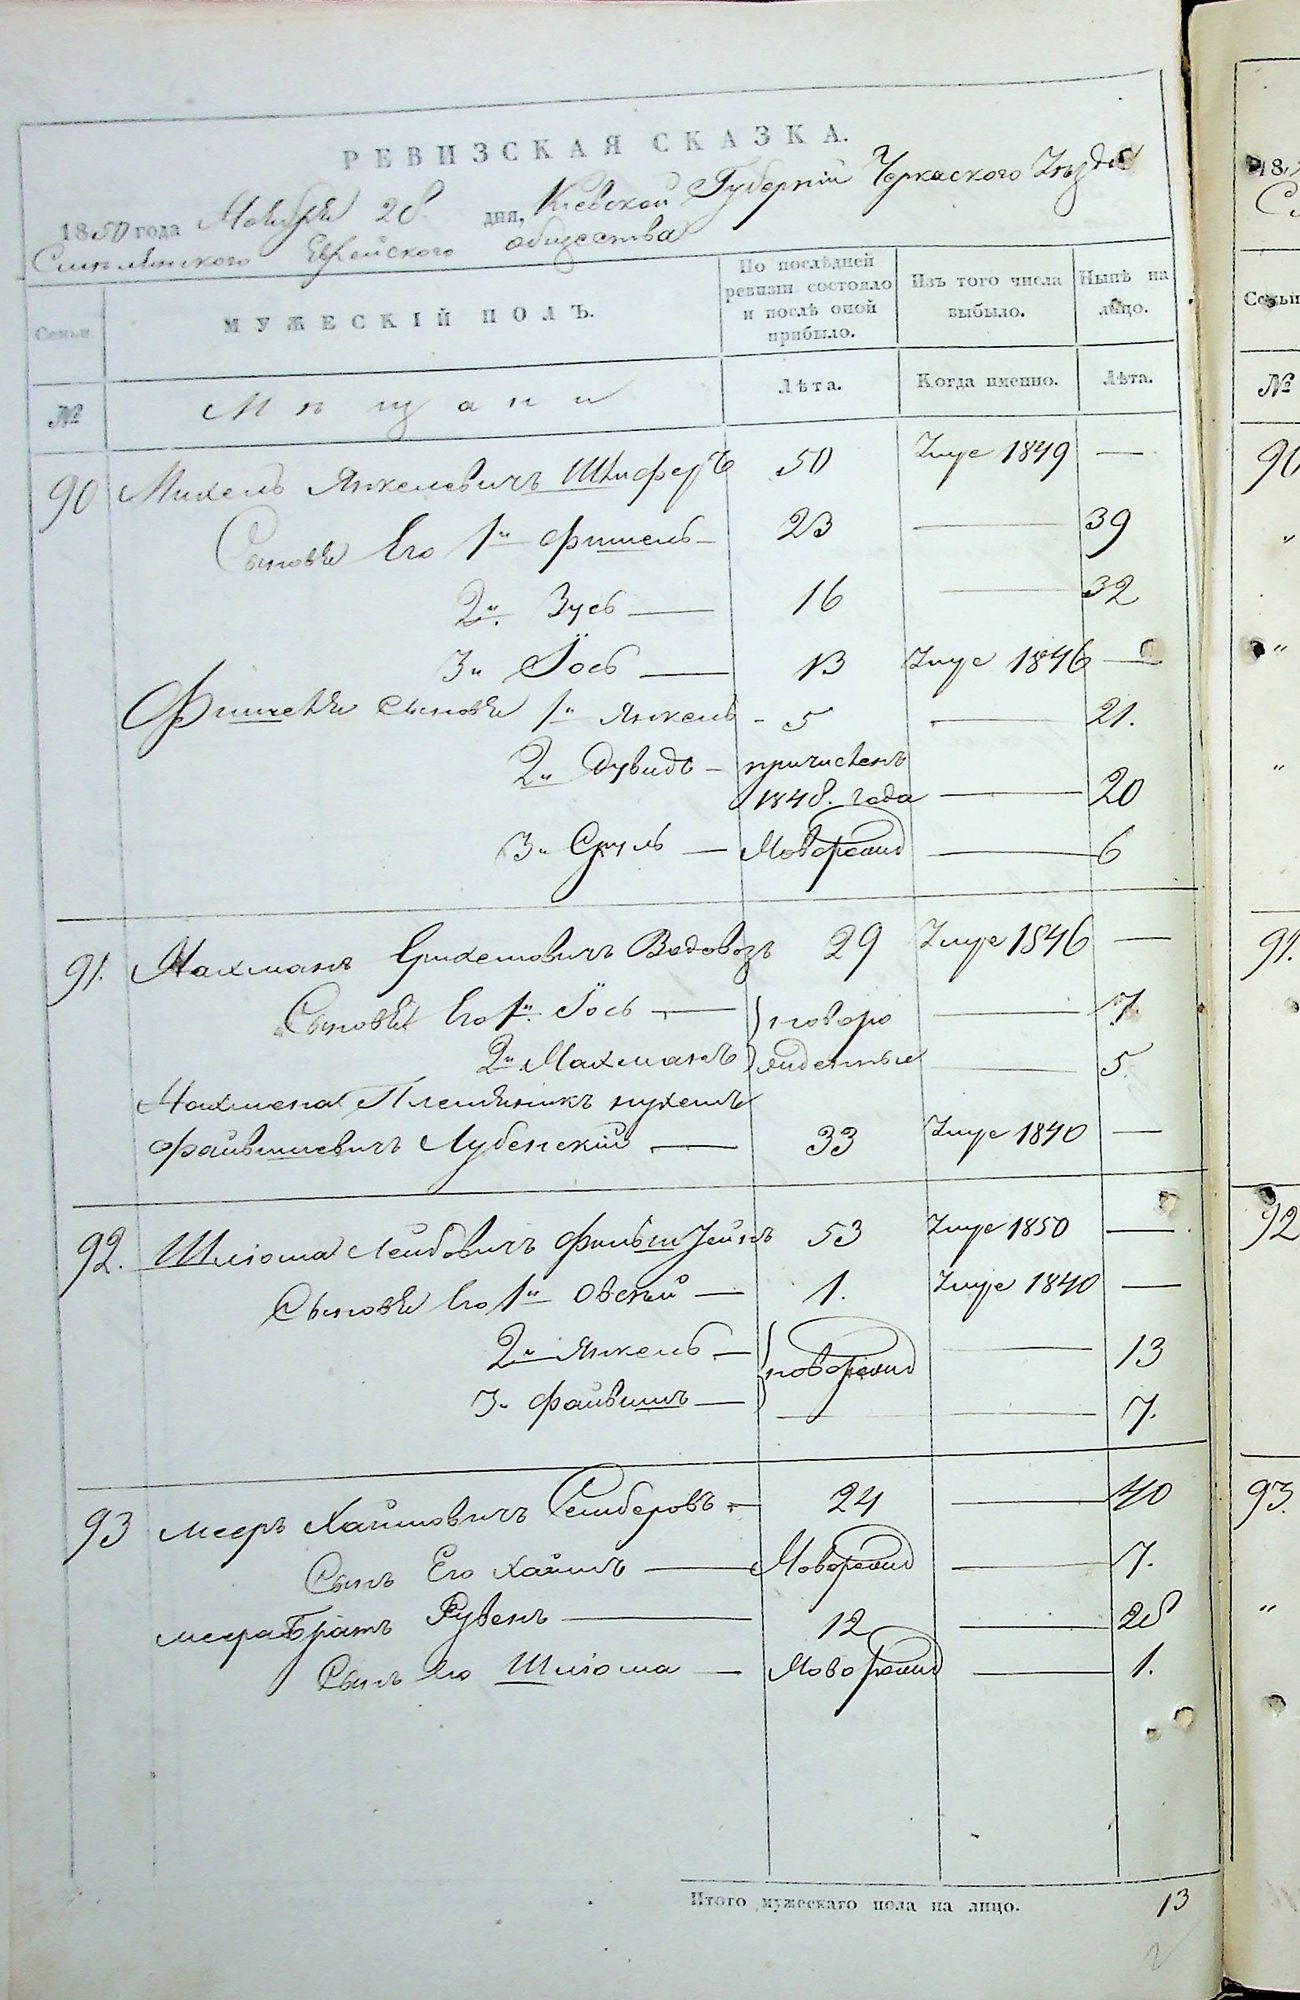 РЕВИЗСКАЯ СКАЗКА.
1850 года Ноября 28. дня, Кіевской Губерніи Черкаского Уѣзда
Смилянского Еврейского общества
Семьи. МУЖЕСКІЙ ПОЛЪ. По послѣдней ревизіи состояло и послѣ оной прибыло. Изъ того числа выбыло. Нынѣ на лицо.
№ Мѣщани Лѣта. Когда именно. Лѣта.
90 Михель Янкелевичъ Шиферъ 50 Умре 1849 —
Сыновя Его 1й Фишель — 23 — 39
2й Зусь — 16 — 32
3й Іось — 13 Умре 1846 —
Фишеля сыновя 1й Янкель - 5 — 21.
2й Дувидъ — причисленъ
1848. года — 20
3й Сруль — Новорожд — 6
91. Нахманъ Ерихемовичъ Водовозъ 29 Умре 1846 —
Сыновя Его 1й Іось — новоро — 7.
2й Нахманъ жденные — 5.
Нахмена Племяникъ
Файвишевичъ Лубенский — 33 Умре 1840 —
92. Шліома Лейбовичъ 53 Умре 1850 —
Сыновя Его 1й Овсѣй — 1. Умре 1840 —
2й Янкель — новорожд — 13
3й Файвишъ — — 7.
93 Мееръ Хаимовичъ Семберовъ — 24 — 40
Сынъ Его Хаимъ — Новорожд — 7.
Меера Братъ Рувенъ — 12 — 28
Сынъ Его Шліома — Новорожд — 1.
Итого мужескаго пола на лицо. 13
18
Семьи
№
90
"
"
"
91.
92
93.
"